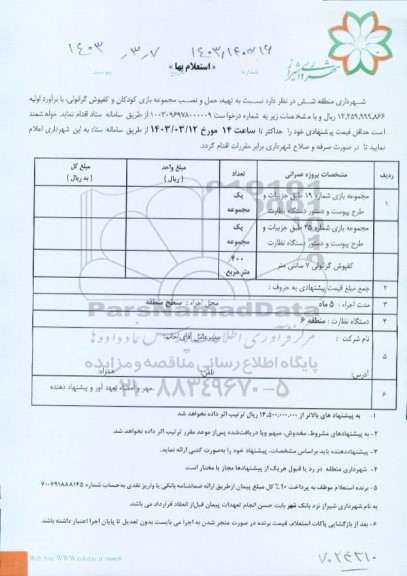 شهرداری شیراز
۱۴۰۳/۳/۷
« استعلام بها »
شهرداری منطقه شش در نظر دارد نسبت به تهیه، حمل و نصب مجموعه بازی کودکان و کفپوش گرانولی، با برآورد اولیه
۱۲,۲۵۹,۹۹۹,۸۶۶ ریال و با مشخصات زیر به شماره درخواست ۱۱۰۳۰۹۶۹۷۸۰۰۰۰۰۹ از طریق سامانه ستاد اقدام نماید. خواهشمند
است حداقل قیمت پیشنهادی خود را حداکثر تا ساعت ۱۴ مورخ ۱۴۰۳/۰۳/۱۲ از طریق سامانه ستاد به این شهرداری اعلام
نمایید تا در صورت صرفه و صلاح شهرداری برابر مقررات اقدام گردد.
ردیف مشخصات پروژه عمرانی تعداد مبلغ واحد ( ریال ) مبلغ کل ( به ریال )
۱ مجموعه بازی شماره ۱۹ طبق جزییات و طرح پیوست و دستور دستگاه نظارت یک مجموعه
مجموعه بازی شماره ۳۵ طبق جزییات و طرح پیوست و دستور دستگاه نظارت یک مجموعه
کفپوش گرنولی ۷ سانتی متر ۴۰۰ مترمربع
۲ جمع مبلغ قیمت پیشنهادی به حروف :
۳ مدت اجراء : ۵ ماه محل اجراء : سطح منطقه
۴ دستگاه نظارت : منطقه ۶
۵ نام شرکت : مدیرعامل آقای/خانم:
آدرس: تلفن: همراه:
۶ مهر و امضاء تعهد آور و پیشنهاد دهنده
ParsNamadData
پایگاه اطلاع رسانی مناقصه و مزایده
۰۲۱-۸۸۳۴۹۶۷۰-۵
۱- به پیشنهاد های بالاتر از ۱۴,۵۰۰,۰۰۰,۰۰۰ ریال ترتیب اثر داده نخواهد شد
۲- به پیشنهادهای مشروط، مخدوش، مبهم ویا دریافت‌شده پس‌از موعد مقرر ترتیب اثر داده نخواهد شد.
۳- پیشنهاددهنده باید براساس مشخصات، پیشنهاد خود را به‌صورت کتبی ارائه نماید.
۴- شهرداری منطقه در رد یا قبول هریک از پیشنهادها مجاز یا مختار است.
۵- برنده استعلام موظف به پرداخت ۱۰٪ کل مبلغ پیمان ازطریق ارائه ضمانتنامه بانکی یا واریز نقدی به‌حساب شماره ۷۰۰۷۹۱۸۸۸۱۴۵
به نام شهرداری شیراز نزد بانک شهر بابت حسن انجام تعهدات پیمان قبل‌از انعقاد قرارداد می باشد.
۶- بعد از بازگشایی پاکات استعلام، قیمت برنده در صورت منجر شدن به اجرا می بایست بدون تعدیل تا پایان اجرا اعتبار داشته باشد.